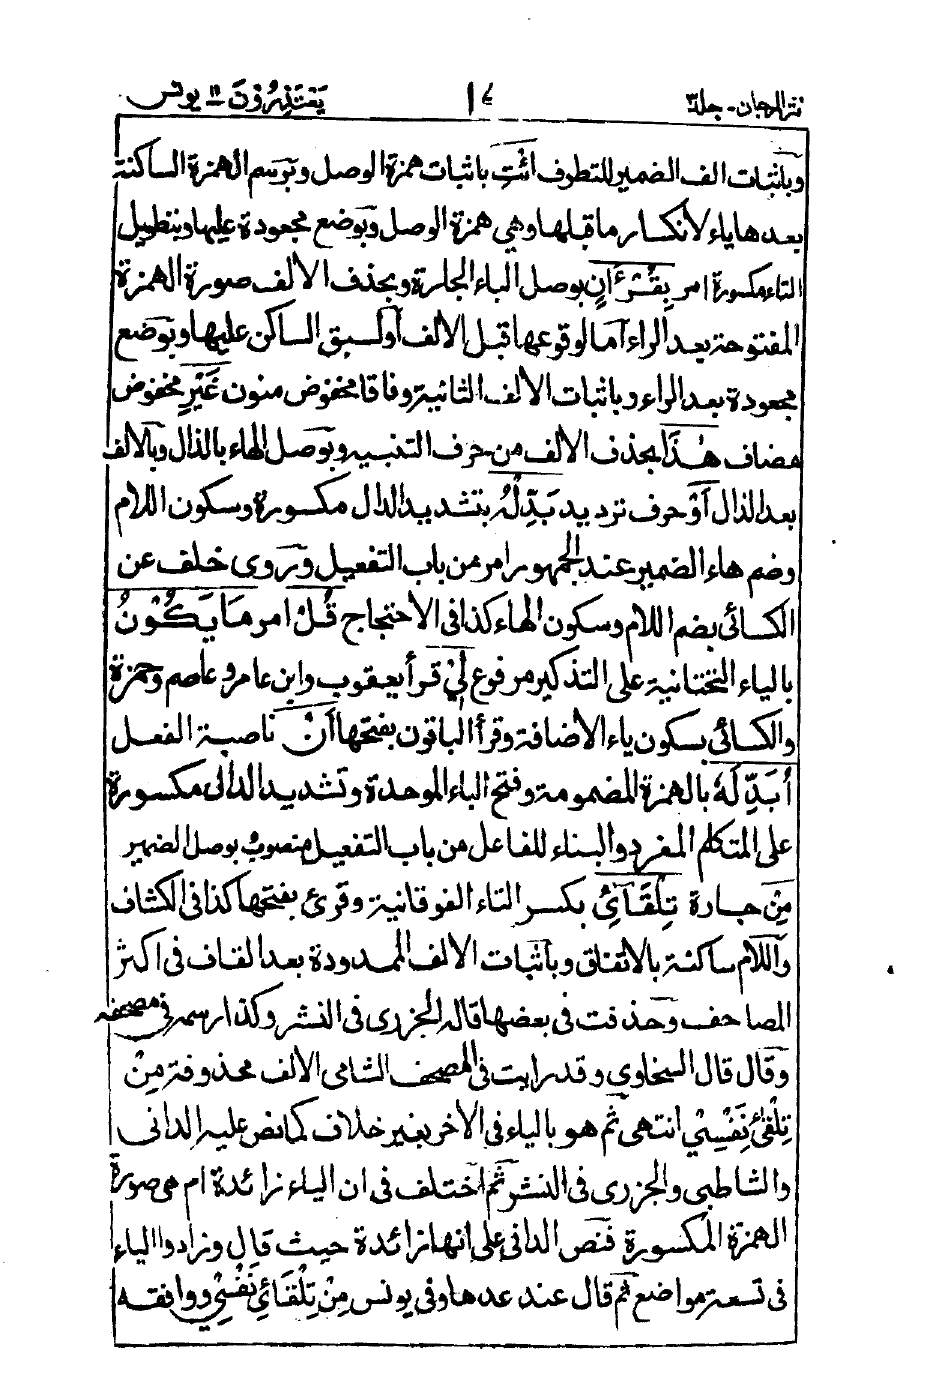 نثر المرجان - جلد ۳ ١٤ يعتذرون ١١ يونس
وباثبات الف الضمير للتطرف ائْتِ باثبات همزة الوصل وبرسم الهمزة الساكنة
بعدها ياء لانكسار ما قبلها وهي همزة الوصل وبوضع مجعودة عليها وبتطويل
التاء مكسورة امر بِقُرْءَانٍ بوصل الباء الجارة وبحذف الالف صورة الهمزة
المفتوحة بعد الراء اما لوقوعها قبل الالف او لسبق الساكن عليها وبوضع
مجعودة بعد الراء وباثبات الالف الثانية وفاقا مخفوض منون غَيْرِ مخفوض
مضاف هٰذَا بحذف الالف من حرف التنبيه وبوصل الهاء بالذال وبالالف
بعد الذال اَوْ حرف ترديد بَدِّلْهُ بتشديد الدال مكسورة وسكون اللام
وضم هاء الضمير عند الجمهور امر من باب التفعيل وروى خلف عن
الكسائي بضم اللام وسكون الهاء كذا في الاحتجاج قُلْ امر مَا يَكُوْنُ
بالياء التحتانية على التذكير مرفوع لِيْ قرأ يعقوب وابن عامر وعاصم وحمزة
والكسائي بسكون ياء الاضافة وقرأ الباقون بفتحها اَنْ ناصبة الفعل
اُبَدِّلَهٗ بالهمزة المضمومة وفتح الباء الموحدة وتشديد الدال مكسورة
على المتكلم المفرد والبناء للفاعل من باب التفعيل منصوب بوصل الضمير
مِنْ جارة تِلْقَآئِ بكسر التاء الفوقانية وقرئ بفتحها كذا في الكشاف
واللام ساكنة بالاتفاق وباثبات الالف الممدودة بعد القاف في اكثر
المصاحف وحذفت في بعضها قاله الجزرى في النشر وكذا رسمه في مصحفه
وقال قال السخاوي وقد رايت في المصحف الشامي الالف محذوفة مِنْ
تِلْقٰئِ نَفْسِيْ انتهى ثم هو بالياء في الاخر بغير خلاف كما نص عليه الداني
والشاطبي والجزرى في النشر ثم اختلف في ان الياء زائدة ام هي صورة
الهمزة المكسورة فنص الداني على انها زائدة حيث قال وزادوا الياء
في تسعة مواضع ثم قال عند عدها وفي يونس مِنْ تِلْقَائِ نَفْسِيْ ووافقه